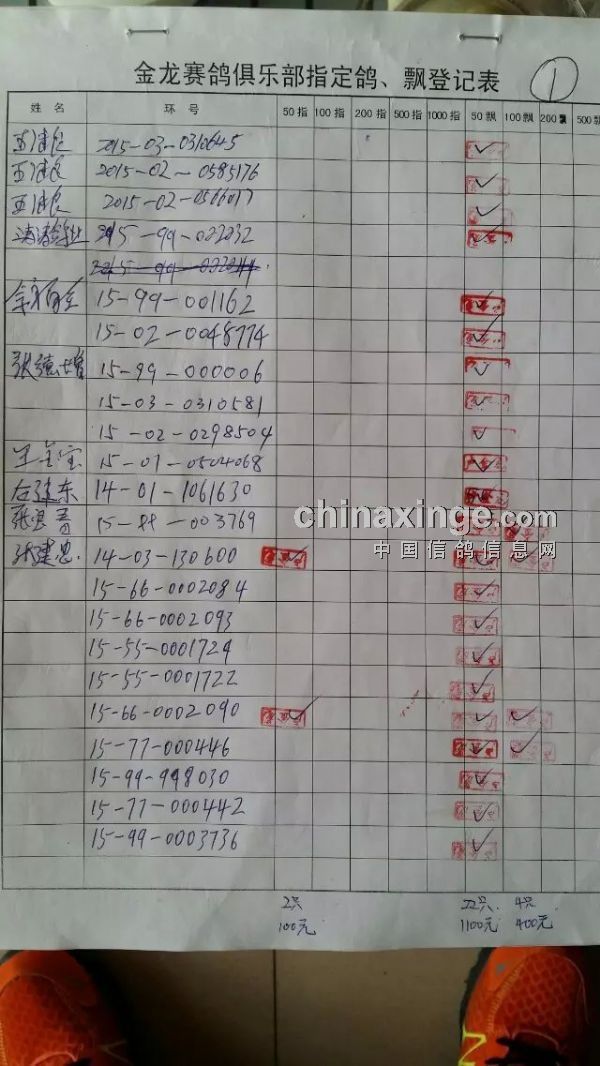 金龙赛鸽俱乐部指定鸽、飘登记表 1
姓名 环号 50指 100指 200指 500指 1000指 50飘 100飘 200飘 500飘
2015-03-0310645 ✓
2015-02-0585176 ✓
2015-02-0566017 ✓
2015-99-022232 ✓
15-99-001162 ✓
15-02-0048774 ✓
15-99-000006 ✓
15-03-0310581 ✓
15-02-0298504 ✓
王金宝 15-01-0504068 ✓
左建东 14-01-1061630 ✓
15-88-003769
张建忠 14-03-130600 ✓ ✓ ✓
15-66-0002084 ✓
15-66-0002093 ✓
15-55-0001724 ✓
15-55-0001722 ✓
15-66-0002090 ✓ ✓ ✓
15-77-000446 ✓ ✓
15-99-998030 ✓
15-77-000442 ✓
15-99-0003736 ✓
2只 22只 4只
100元 1100元 400元
chinaxinge.com
中国信鸽信息网